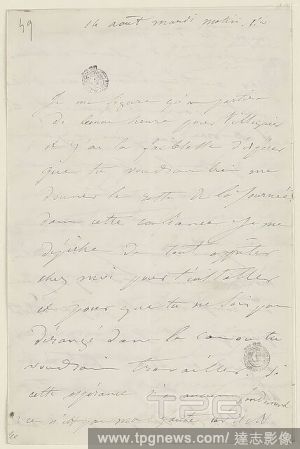 49
14 août mardi matin
Je me figure qu'on partira
de bonne heure pour Villequier
et j'ai la faiblesse d'espérer
que tu voudras bien me
donner le reste de la journée
dans cette confiance je me
dépêche de tout apprêter
chez moi pour t'installer
et pour que tu ne sois pas
dérangé dans le cas où tu
voudrais travailler. Si
cette espérance n'a aucun
ce n'est pas ma faute
TPG
www.tpgnews.com/達志影像